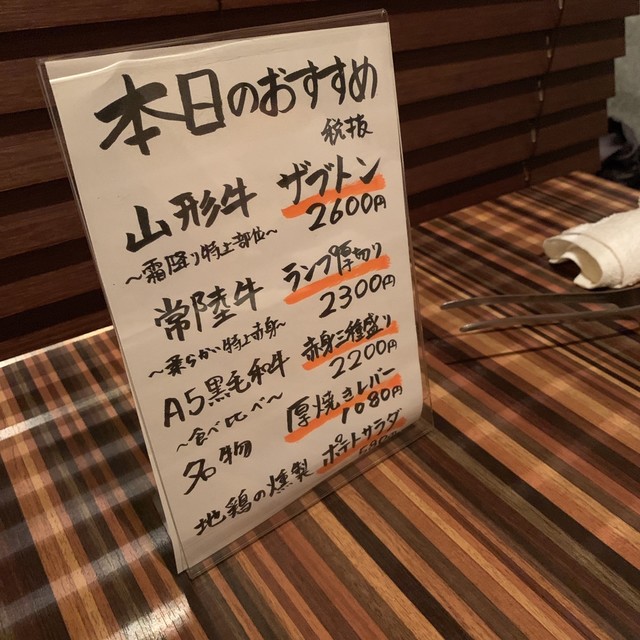 本日のおすすめ
税抜
山形牛 ザブトン
～霜降り特上部位～ 2600円
常陸牛 ランプ厚切り
～柔らかい特上赤身～ 2300円
A5黒毛和牛 赤身三種盛り
～食べ比べ～ 2200円
名物 厚焼きレバー
1080円
地鶏の燻製 ポテトサラダ